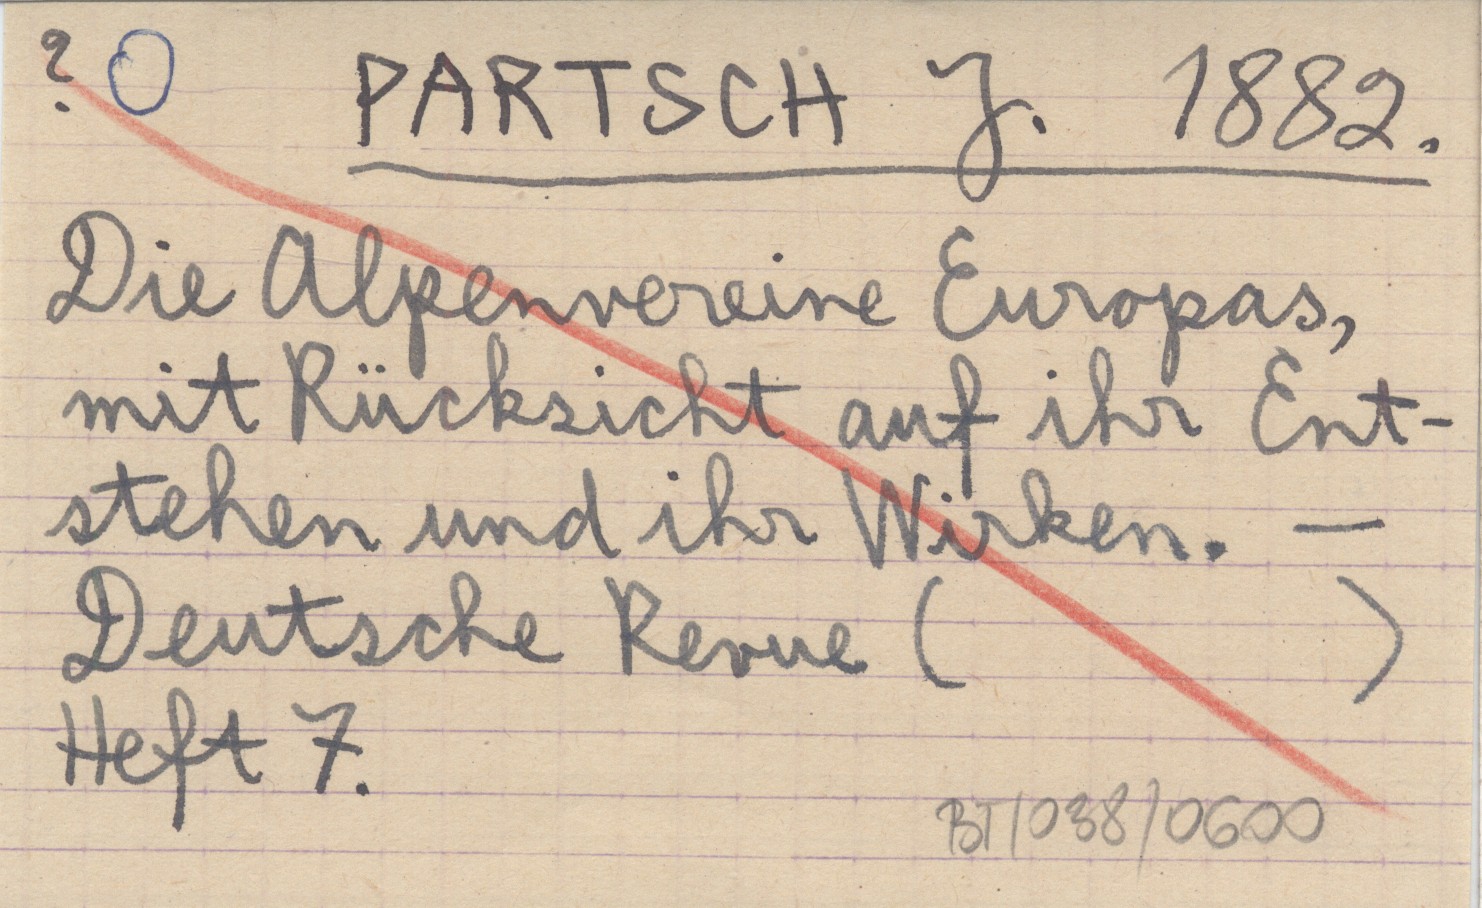 ? O PARTSCH J. 1882.
Die Alpenvereine Europas,
mit Rücksicht auf ihr Ent-
stehen und ihr Wirken. —
Deutsche Revue ( )
Heft 7.
BT/038/0600